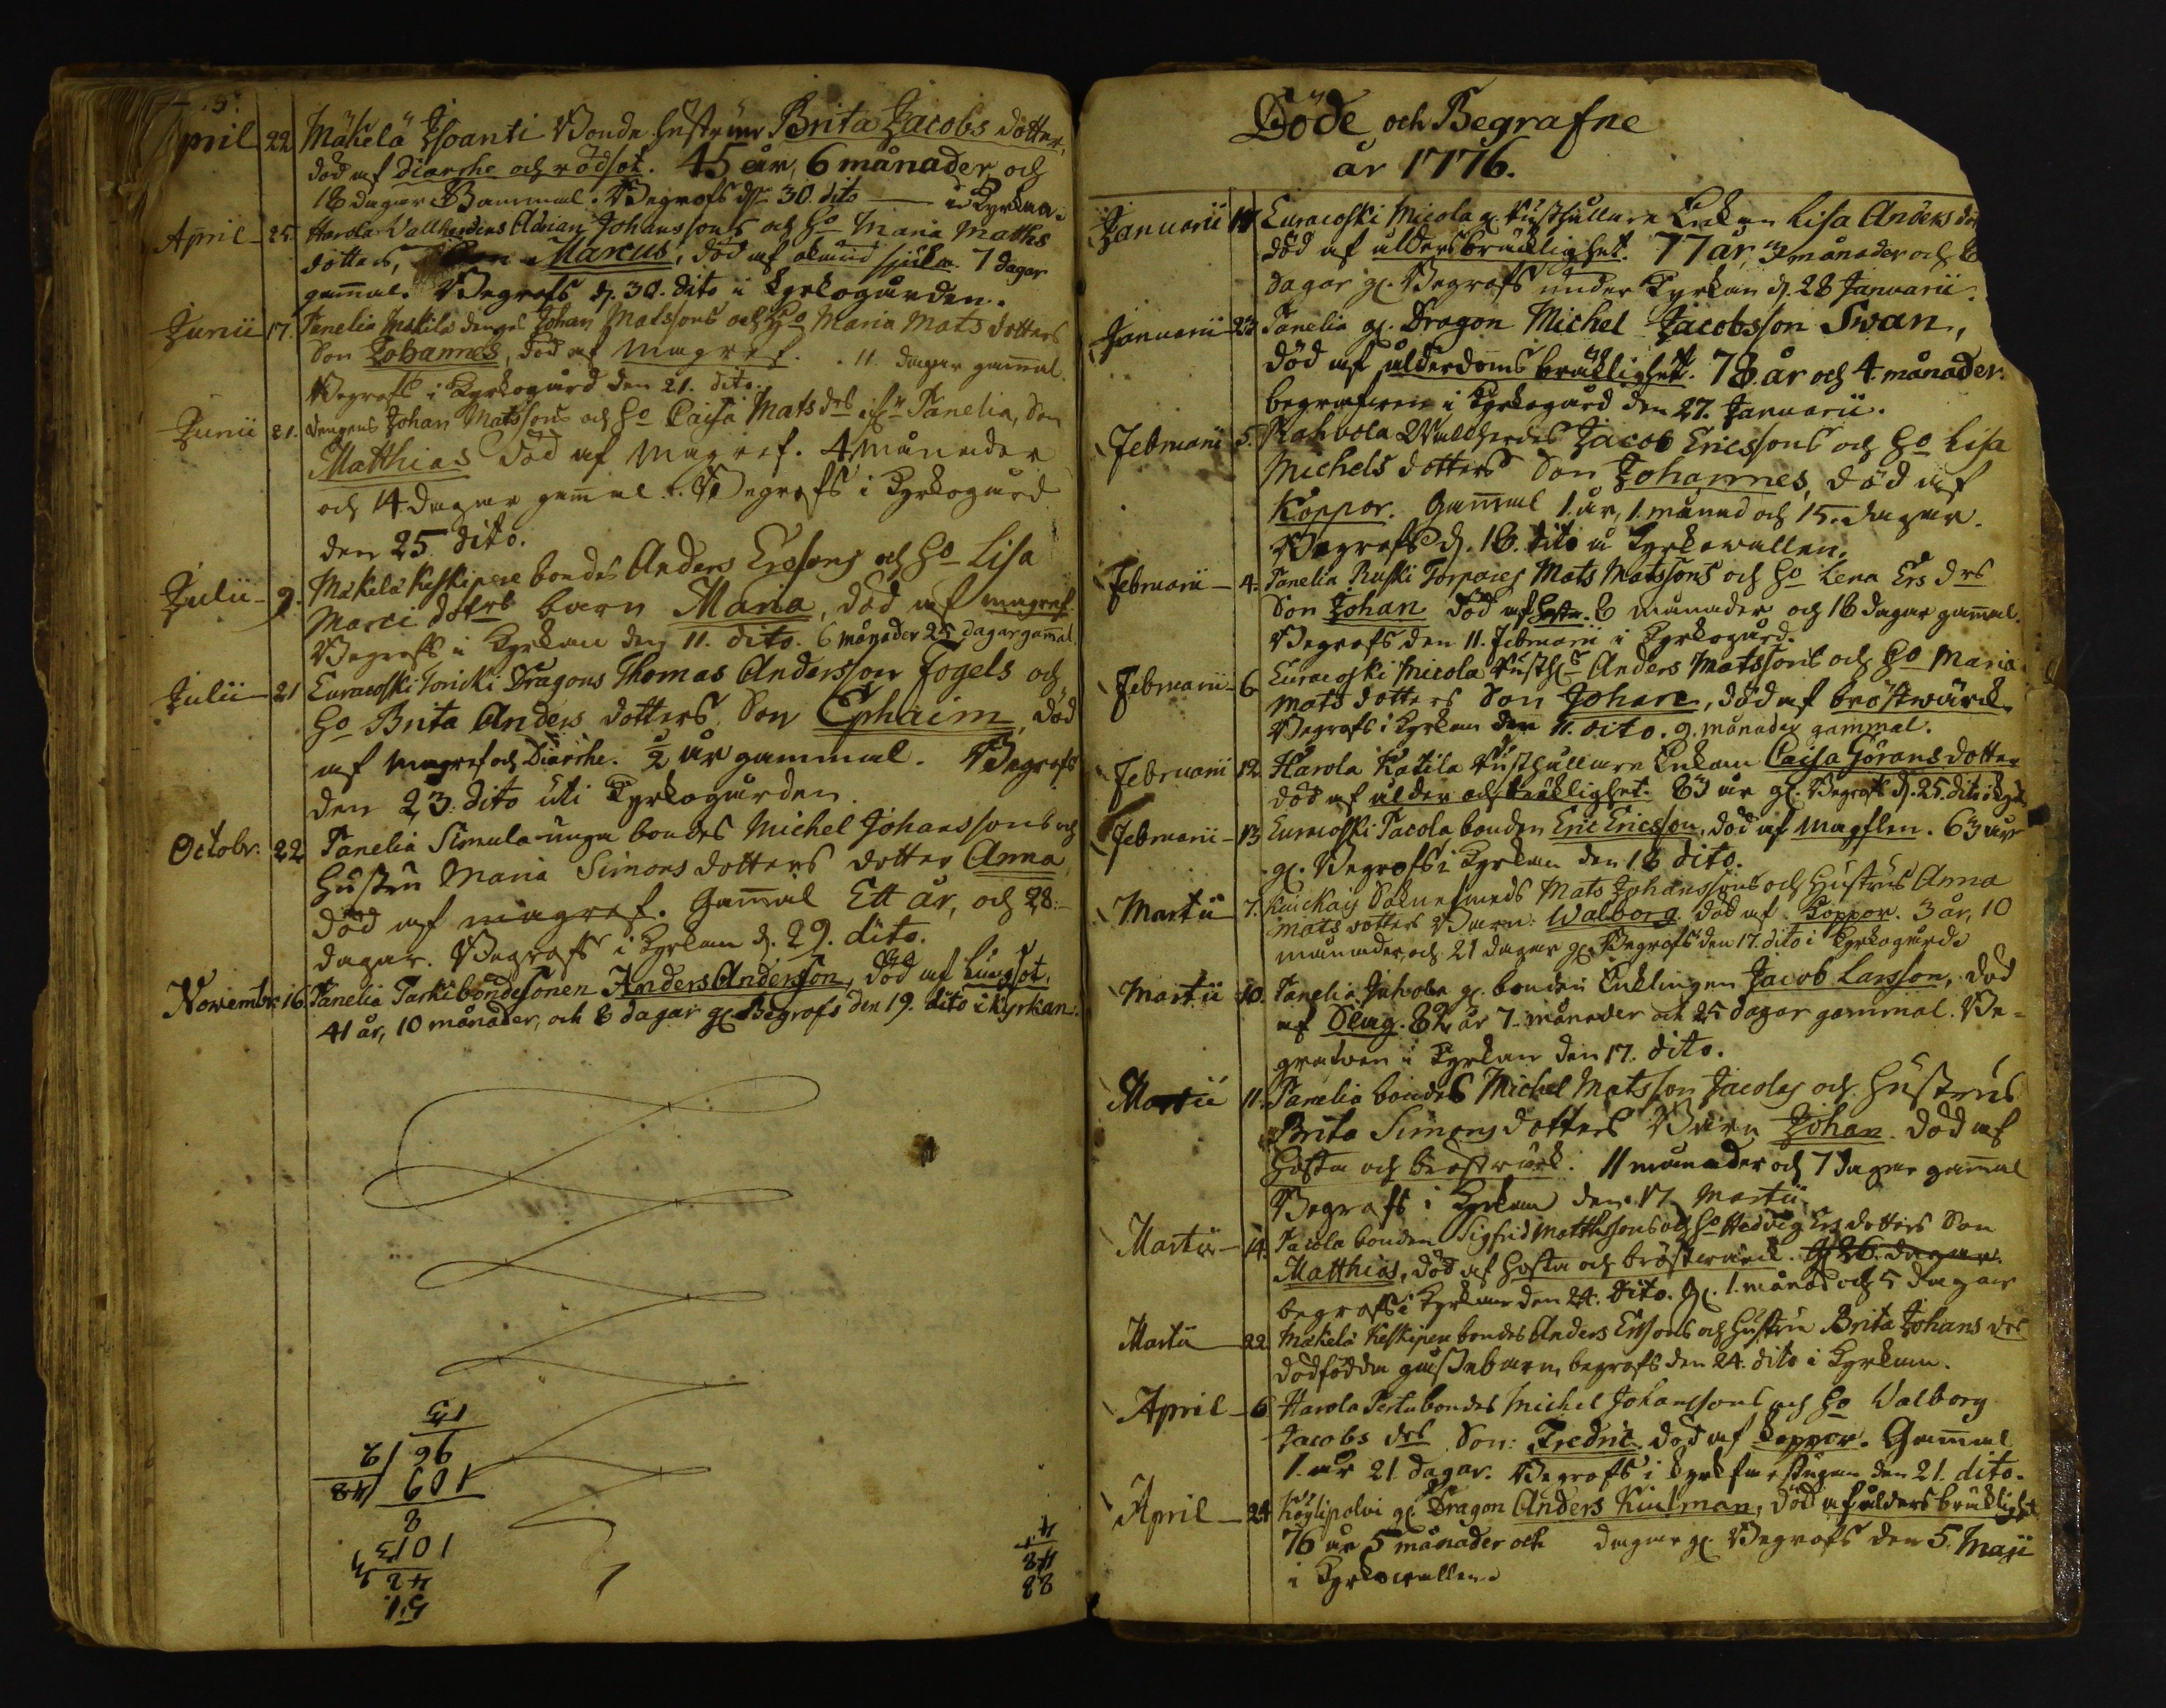 April 22 Mäkelä Isoanti Bonde hustrun Brita Jacobs dotter,
död af diarrhe och rödsot. 45 år, 6 månader och
18 dagar Gammal. Begrofs d. 30. dito — i Kyrkan.
April 25. Harola Vallherdens Adrian Johanssons och Ho Maria Matths
dotters, Son Marcus, död af okänd sjuka. 7 dagar
gammal. Begrofs d. 30. dito i Kyrkogården.
Junii 17. Panelia Mskilä drengs Johan Matssons och Ho Maria Mats dotters
Son Johannes, död af magref. 11. dagar gammal.
Begrofs i Kyrkogård den 21. dito.
Junii 21. drengens Johan Matssons och Ho Caisa Mats drs ifrn Panelia, Son
Matthias död af magref. 4 månader
och 14 dagar gammal. Begrofs i Kyrkogård
den 25. dito.
Julii 9. Mäkelä Keskipere bondes Anders Erssons och Ho Lisa
Marci dotrs barn Maria, död af magref.
Begrofs i Kyrkan den 11. dito. 6 månader 25 dagar gamal
Julii 21 Euracoski Toricki Dragons Thomas Andersson Fogels och
Ho Brita Anders dotters Son Ephraim, död
af magref och Diarrhe. ½ år gammal. Begrofs
den 23. dito uti Kyrkogården.
Octobr. 22 Panelia Simula unga bondes Michel Johanssons och
Hustru Maria Simons dotters dotter Anna
död af magref. Gammal Ett år, och 28.
dagar. Begrofs i Kyrkan d. 29. dito.
Novembr 16. Panelia Tarki bondesonen Anders Andersson, död af Lungsot.
41 år, 10 månader, och 8 dagar gl. Begrofs den 19. dito i Kyrkan.
15
96 / 2
109 / 48
8
1013
42
51.
4
48
88
Döde och Begrafne
år 1776.
Januarii Euracoski Micola gl. Rusthållare Enkan Lisa Anders
död af ålders bräcklighet. 77 år, månader och
dagar gl. Begrofs under Kyrkan d. 28 Januarii.
Januarii 23 Panelia gl. Dragon Michel Jacobsson Swan,
död af ålderdoms bräklighet. 78. år och 4. månader.
begrafven i Kyrkogård den 27. Januarii.
Februarii 5. Kahvola Wallherdes Jacob Ericssons och Ho Lisa
Michels dotters Son Johannes, död af
Koppor. Gammal 1. år, 1. månad och 15. dagar.
Begrofs d. 18. dito å Kyrkowallen.
Februarii 4. Panelia Ruski Torpares Mats Matssons och Ho Lena Ers drs
Son Johan död af hosta. 8 månader och 18 dagar gammal.
Begrofs den 11. Februarii i Kyrkogård.
Februarii 6 Euracoski Micola Rusth. Anders Matssons och Ho Maria
Mats dotters Son Johan, död af bröstwärck.
Begrofs i Kyrkan den 11. dito. 9. månader gammal.
Februarii 12. Harola Katila Rusthållare Enkan Caisa Görans dotter
död af ålder och bräklighet. 83 år gl. Begrofs d. 25. dito
Februarii 13 Euracoski Pacola bonden Eric Ericsson, död af magflen. 63 år
gl. Begrofs i Kyrkan den 18 dito.
Martii 7. Kaickais Sockne smeds Mats Johanssons och Hustrus Anna
Mats dotters Barn: Walborg död af Koppor. 3 år, 10
månader, och 21 dagar gl. Begrofs den 17. dito i Kyrkogårde
Martii 10. Panelia Juhola gl. bonden Enklingen Jacob Larsson, död
af Slag. 82 år 7. månader och 25 dagar gammal. Be-
grafven i Kyrkan den 17. dito.
Martii 11. Panelia bondes Michel Matsson Jacolas och Hustrus
Brita Simons dotters Barn Johan. död af
Hosta och bröstwärck. 11 månader och 7 dagar gammal
Begrofs i Kyrkan den 17 Martii.
Martii 14. Pacola bonden Sigfrid Matthssons och Ho Hedvig Ers dotters Son
Matthias, död af Hosta och bröstwärck. gl. 26. dagar.
begrofs i Kyrkan den 24. dito. gl. 1. månad och 5 dagar
Martii 22. Mäkelä Keskipere bondes Anders Erssons och Hustru Brita Johans drs
dödfödda gossebarn, begrofs den 24. dito i Kyrkan.
April 6 Harola Pertu bondes Michel Johanssons och Ho Valborg
Jacobs drs Son: Fredric död af koppor. Gammal
1. år 21. dagar. Begrofs i den 21. dito.
April 24 Köylipolvi gl. Dragon Anders Kiulman, död af ålders bräklighet
76 år 5 månader och dagar gl. Begrofs den 5. Maji
i Kyrkowallen.